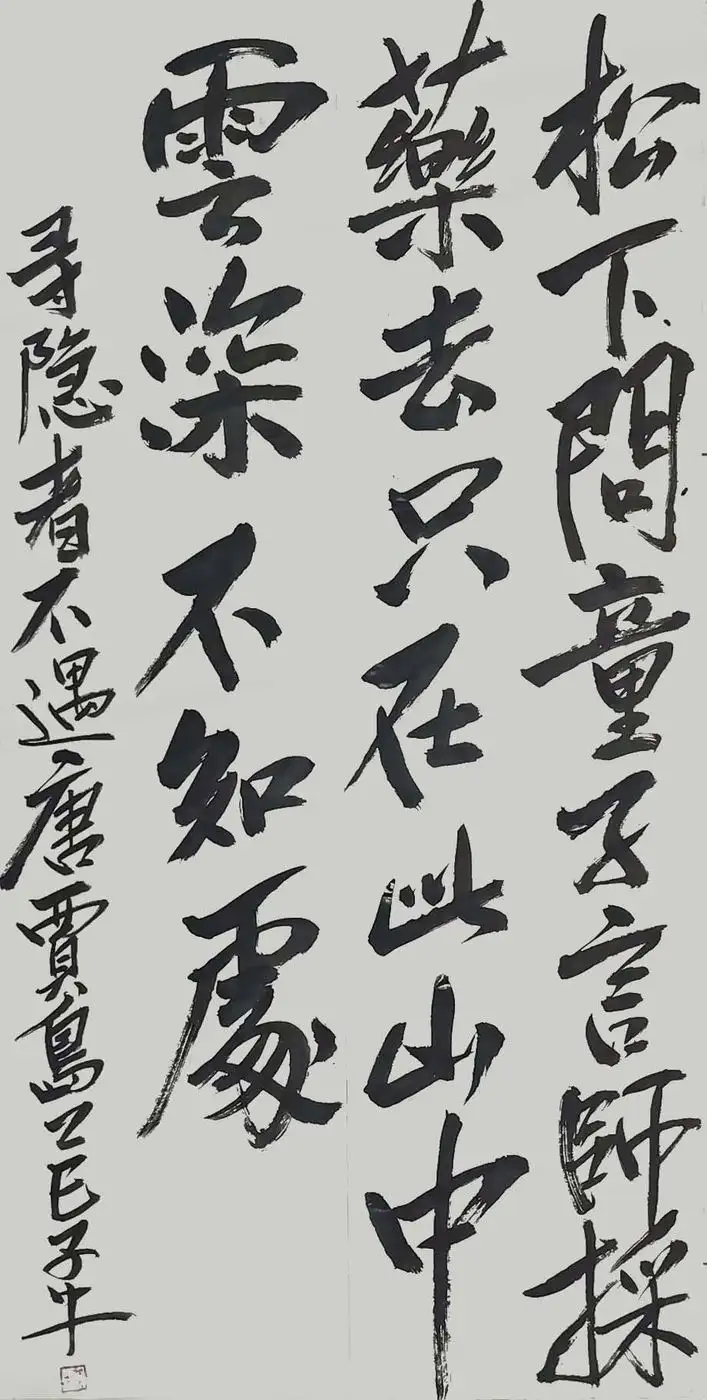 松下問童子言師採
藥去只在此山中
雲深不知處
寻隐者不遇唐賈島乙巳子牛